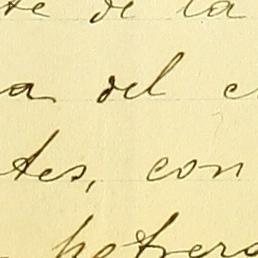 te de la
a del c
tes, con
potrero